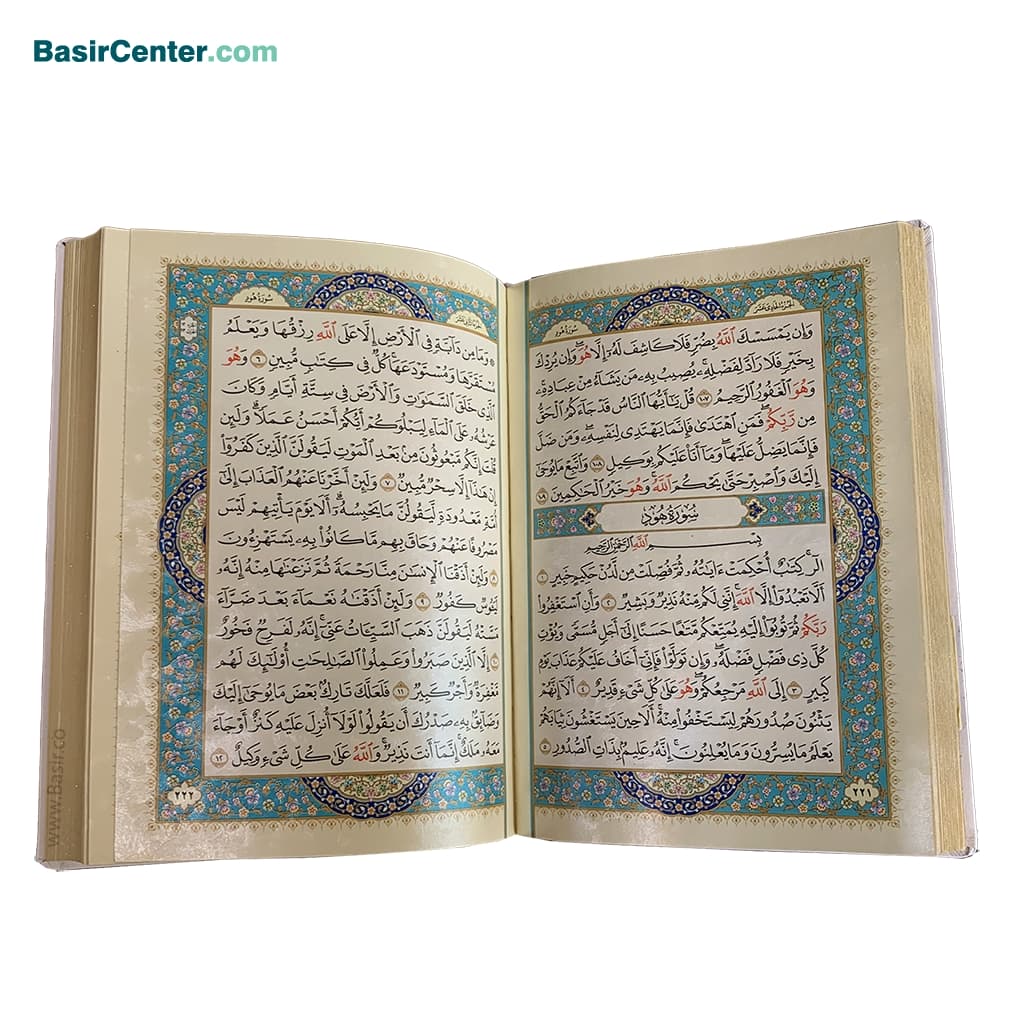 BasirCenter.com
الجزء الحادي عشر
سورة هود
وَإِن يَمْسَسْكَ ٱللَّهُ بِضُرٍّ فَلَا كَاشِفَ لَهُۥٓ إِلَّا هُوَۖ وَإِن يُرِدْكَ
بِخَيْرٍ فَلَا رَآدَّ لِفَضْلِهِۦۚ يُصِيبُ بِهِۦ مَن يَشَآءُ مِنْ عِبَادِهِۦۚ
وَهُوَ ٱلْغَفُورُ ٱلرَّحِيمُ ١٠٧ قُلْ يَٰٓأَيُّهَا ٱلنَّاسُ قَدْ جَآءَكُمُ ٱلْحَقُّ
مِن رَّبِّكُمْۖ فَمَنِ ٱهْتَدَىٰ فَإِنَّمَا يَهْتَدِى لِنَفْسِهِۦۖ وَمَن ضَلَّ
فَإِنَّمَا يَضِلُّ عَلَيْهَاۖ وَمَآ أَنَا۠ عَلَيْكُم بِوَكِيلٍ ١٠٨ وَٱتَّبِعْ مَا يُوحَىٰٓ
إِلَيْكَ وَٱصْبِرْ حَتَّىٰ يَحْكُمَ ٱللَّهُۚ وَهُوَ خَيْرُ ٱلْحَٰكِمِينَ ١٠٩
سُورَةُ هُودٍ
بِسْمِ ٱللَّهِ ٱلرَّحْمَٰنِ ٱلرَّحِيمِ
الٓرۚ كِتَٰبٌ أُحْكِمَتْ ءَايَٰتُهُۥ ثُمَّ فُصِّلَتْ مِن لَّدُنْ حَكِيمٍ خَبِيرٍ ١
أَلَّا تَعْبُدُوٓا۟ إِلَّا ٱللَّهَۚ إِنَّنِى لَكُم مِّنْهُ نَذِيرٌ وَبَشِيرٌ ٢ وَأَنِ ٱسْتَغْفِرُوا۟
رَبَّكُمْ ثُمَّ تُوبُوٓا۟ إِلَيْهِ يُمَتِّعْكُم مَّتَٰعًا حَسَنًا إِلَىٰٓ أَجَلٍ مُّسَمًّى وَيُؤْتِ
كُلَّ ذِى فَضْلٍ فَضْلَهُۥۖ وَإِن تَوَلَّوْا۟ فَإِنِّىٓ أَخَافُ عَلَيْكُمْ عَذَابَ يَوْمٍ
كَبِيرٍ ٣ إِلَى ٱللَّهِ مَرْجِعُكُمْۖ وَهُوَ عَلَىٰ كُلِّ شَىْءٍ قَدِيرٌ ٤ أَلَآ إِنَّهُمْ
يَثْنُونَ صُدُورَهُمْ لِيَسْتَخْفُوا۟ مِنْهُۚ أَلَا حِينَ يَسْتَغْشُونَ ثِيَابَهُمْ
يَعْلَمُ مَا يُسِرُّونَ وَمَا يُعْلِنُونَۚ إِنَّهُۥ عَلِيمٌۢ بِذَاتِ ٱلصُّدُورِ ٥
٢٢١
الجزء الثاني عشر
سورة هود
۞ وَمَا مِن دَآبَّةٍ فِى ٱلْأَرْضِ إِلَّا عَلَى ٱللَّهِ رِزْقُهَا وَيَعْلَمُ
مُسْتَقَرَّهَا وَمُسْتَوْدَعَهَاۚ كُلٌّ فِى كِتَٰبٍ مُّبِينٍ ٦ وَهُوَ
ٱلَّذِى خَلَقَ ٱلسَّمَٰوَٰتِ وَٱلْأَرْضَ فِى سِتَّةِ أَيَّامٍ وَكَانَ
عَرْشُهُۥ عَلَى ٱلْمَآءِ لِيَبْلُوَكُمْ أَيُّكُمْ أَحْسَنُ عَمَلًاۗ وَلَئِن
قُلْتَ إِنَّكُم مَّبْعُوثُونَ مِنۢ بَعْدِ ٱلْمَوْتِ لَيَقُولَنَّ ٱلَّذِينَ كَفَرُوٓا۟
إِنْ هَٰذَآ إِلَّا سِحْرٌ مُّبِينٌ ٧ وَلَئِنْ أَخَّرْنَا عَنْهُمُ ٱلْعَذَابَ إِلَىٰٓ
أُمَّةٍ مَّعْدُودَةٍ لَّيَقُولُنَّ مَا يَحْبِسُهُۥٓۗ أَلَا يَوْمَ يَأْتِيهِمْ لَيْسَ
مَصْرُوفًا عَنْهُمْ وَحَاقَ بِهِم مَّا كَانُوا۟ بِهِۦ يَسْتَهْزِءُونَ
٨ وَلَئِنْ أَذَقْنَا ٱلْإِنسَٰنَ مِنَّا رَحْمَةً ثُمَّ نَزَعْنَٰهَا مِنْهُ إِنَّهُۥ
لَيَـُٔوسٌ كَفُورٌ ٩ وَلَئِنْ أَذَقْنَٰهُ نَعْمَآءَ بَعْدَ ضَرَّآءَ
مَسَّتْهُ لَيَقُولَنَّ ذَهَبَ ٱلسَّيِّـَٔاتُ عَنِّىٓۚ إِنَّهُۥ لَفَرِحٌ فَخُورٌ
١٠ إِلَّا ٱلَّذِينَ صَبَرُوا۟ وَعَمِلُوا۟ ٱلصَّٰلِحَٰتِ أُو۟لَٰٓئِكَ لَهُم
مَّغْفِرَةٌ وَأَجْرٌ كَبِيرٌ ١١ فَلَعَلَّكَ تَارِكٌۢ بَعْضَ مَا يُوحَىٰٓ إِلَيْكَ
وَضَآئِقٌۢ بِهِۦ صَدْرُكَ أَن يَقُولُوا۟ لَوْلَآ أُنزِلَ عَلَيْهِ كَنزٌ أَوْ جَآءَ
مَعَهُۥ مَلَكٌۚ إِنَّمَآ أَنتَ نَذِيرٌۚ وَٱللَّهُ عَلَىٰ كُلِّ شَىْءٍ وَكِيلٌ ١٢
٢٢٢
www.Basir.co